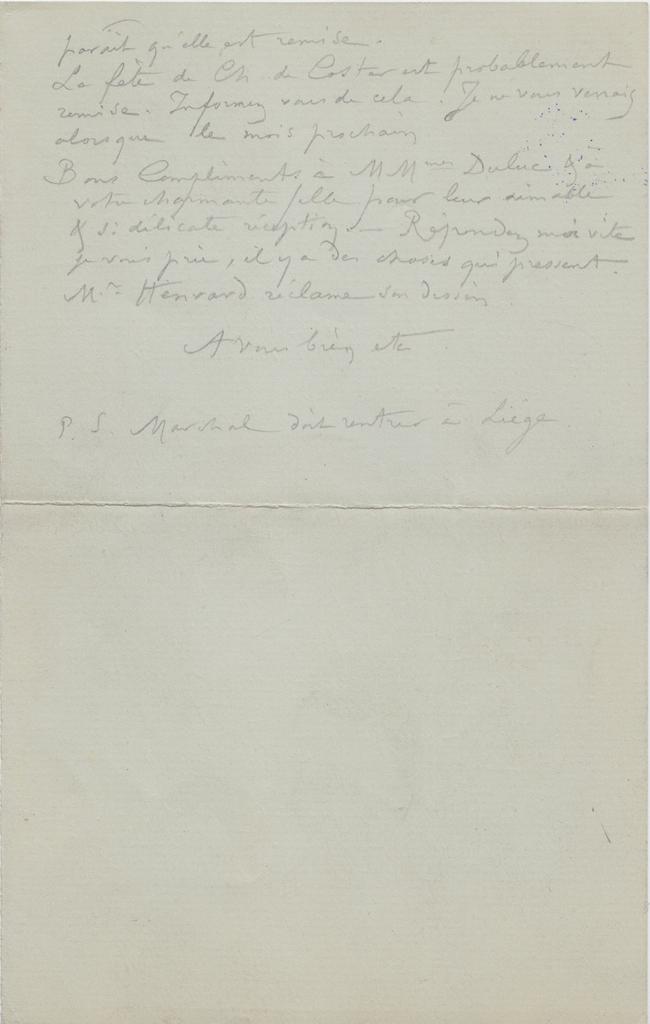 paraît qu'elle est remise.
La fête de Ch. de Coster est probablement
remise. Informez vous de cela. Je ne vous verrais
alors que le mois prochain
Bons Compliments à MMmes Duluc & à
votre charmante fille pour leur aimable
& si délicate réception. — Répondez moi vite
je vous prie, il y a des choses qui pressent.
Mr Henrard réclame son dessin
A vous bien etc
P. S. Marchal doit rentrer à Liége